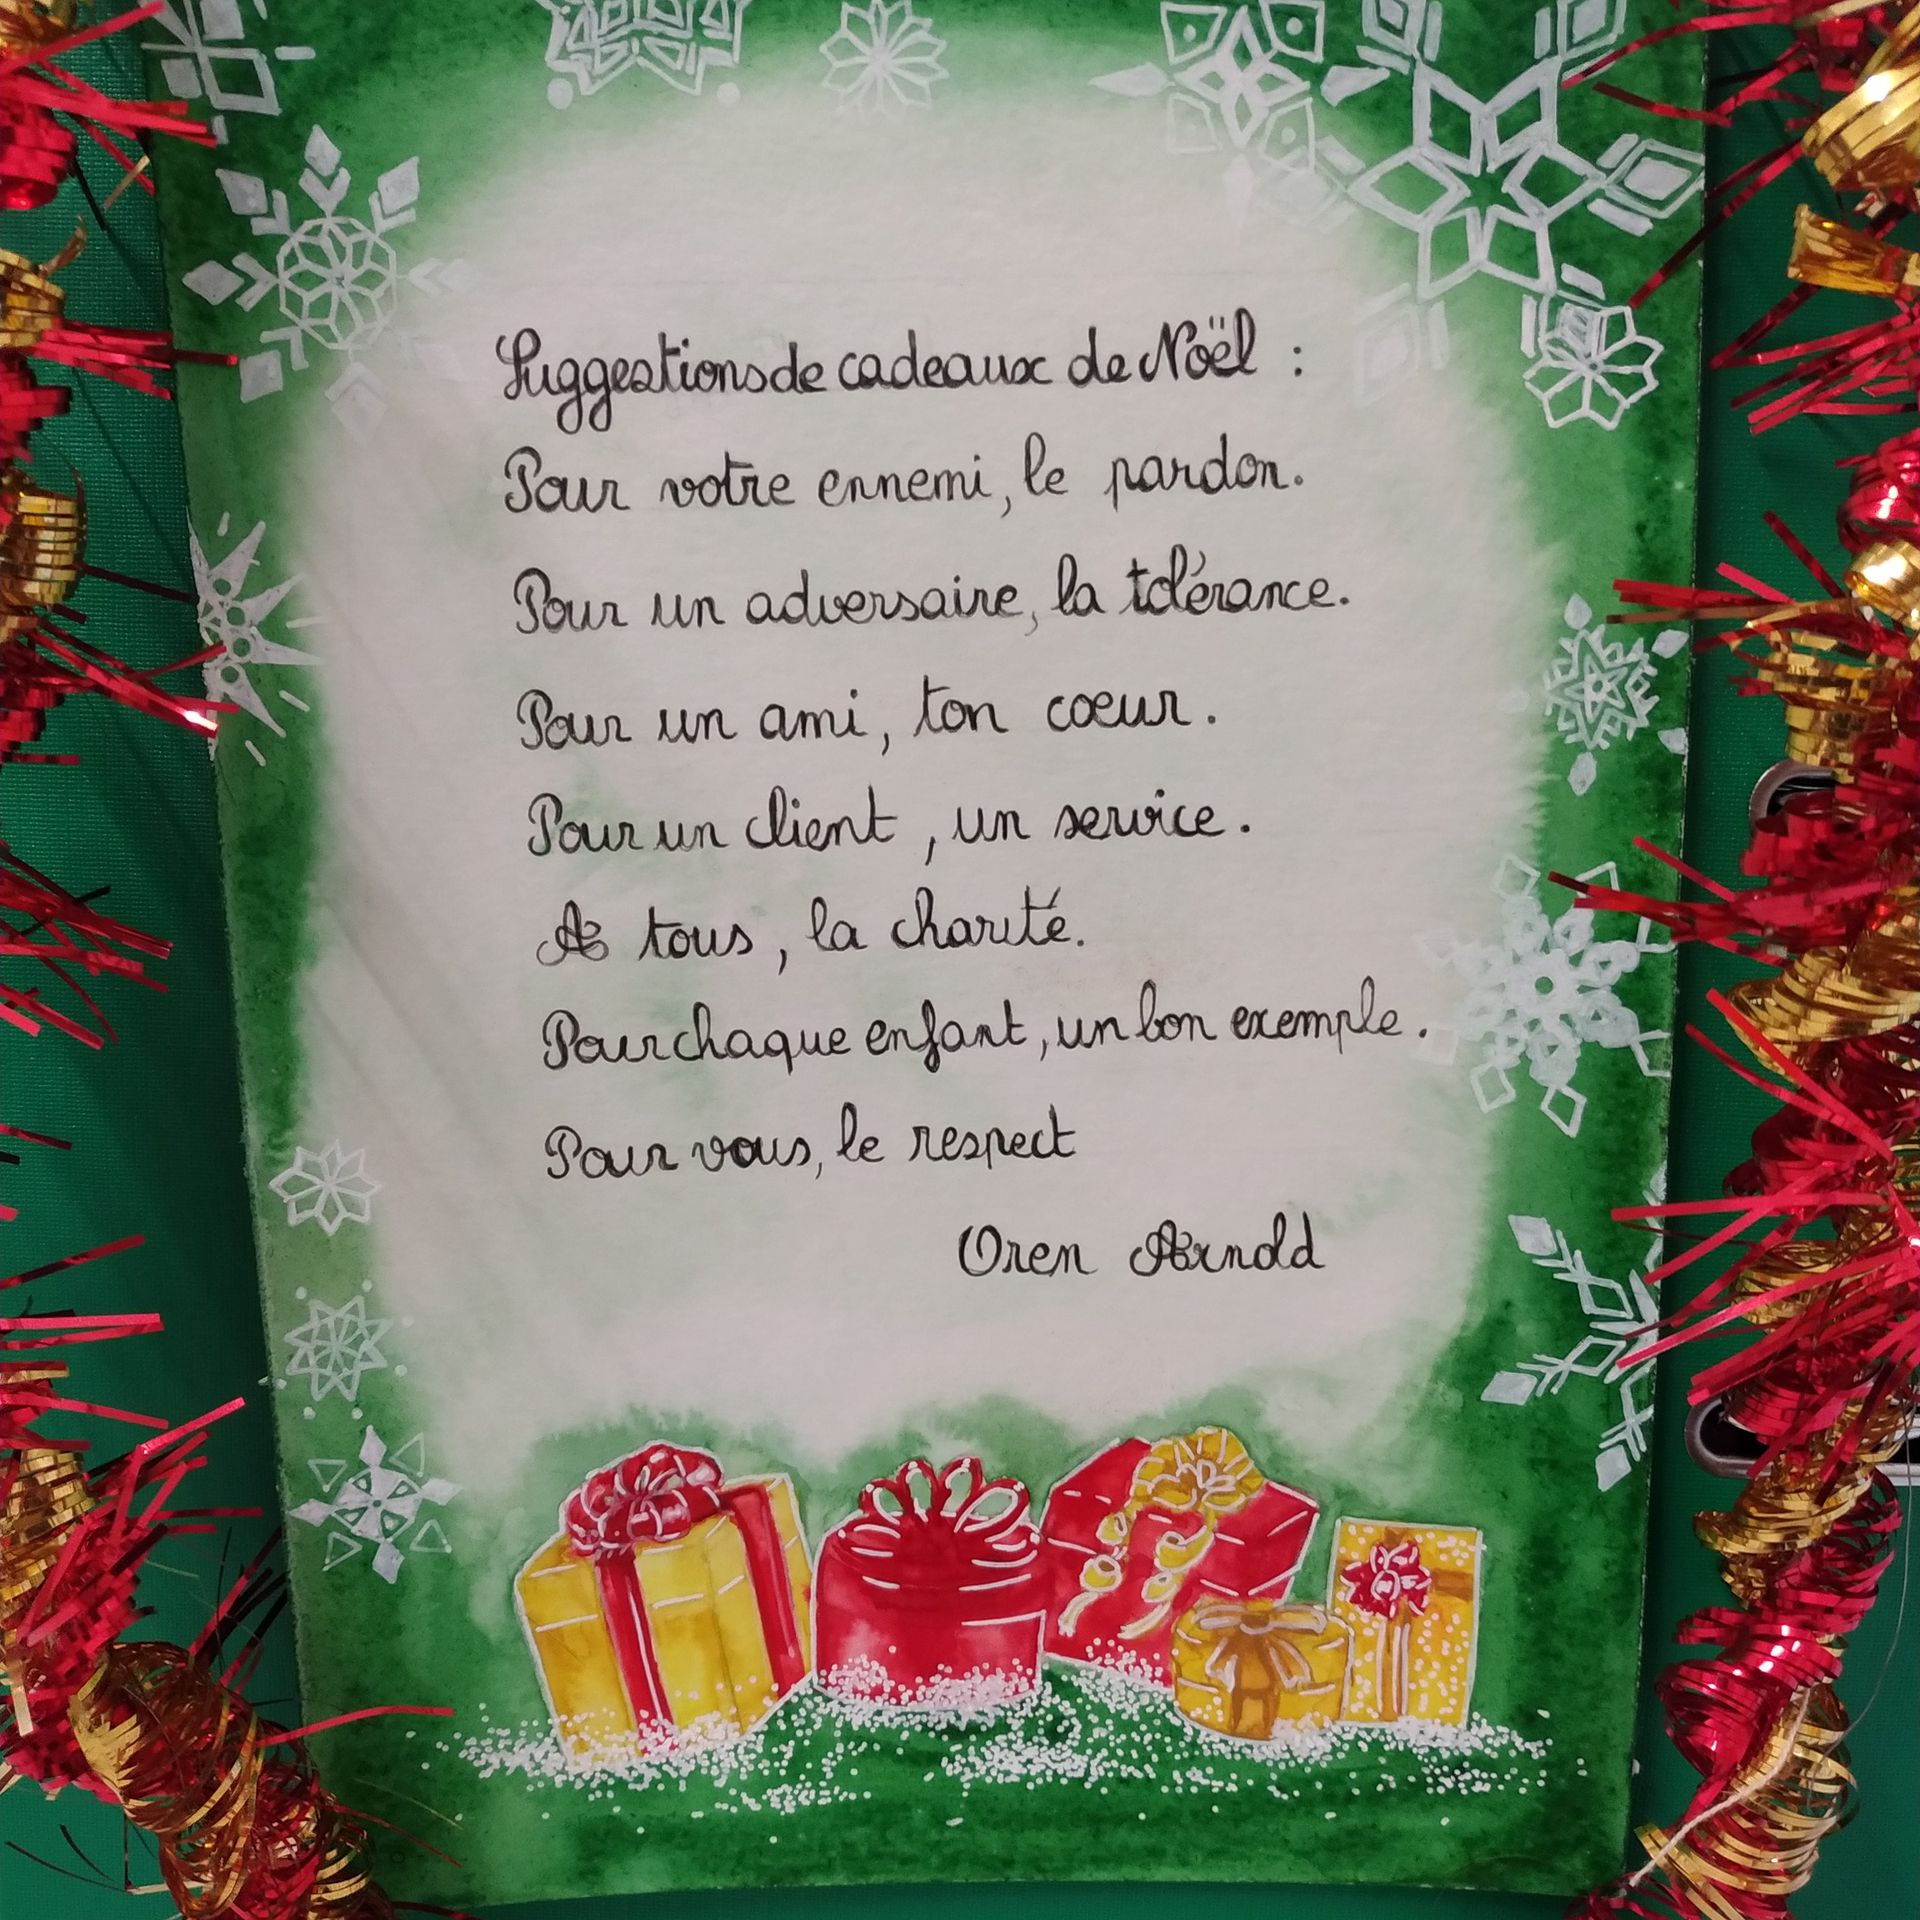 Suggestions de cadeaux de Noël :
Pour votre ennemi, le pardon.
Pour un adversaire, la tolérance.
Pour un ami, ton coeur.
Pour un client, un service.
A tous, la charité.
Pour chaque enfant, un bon exemple.
Pour vous, le respect
Oren Arnold